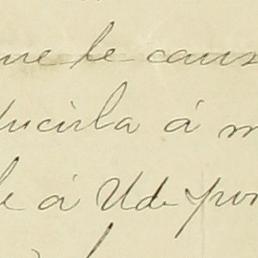 ue le caus
ducirla á m
le á Ud. por